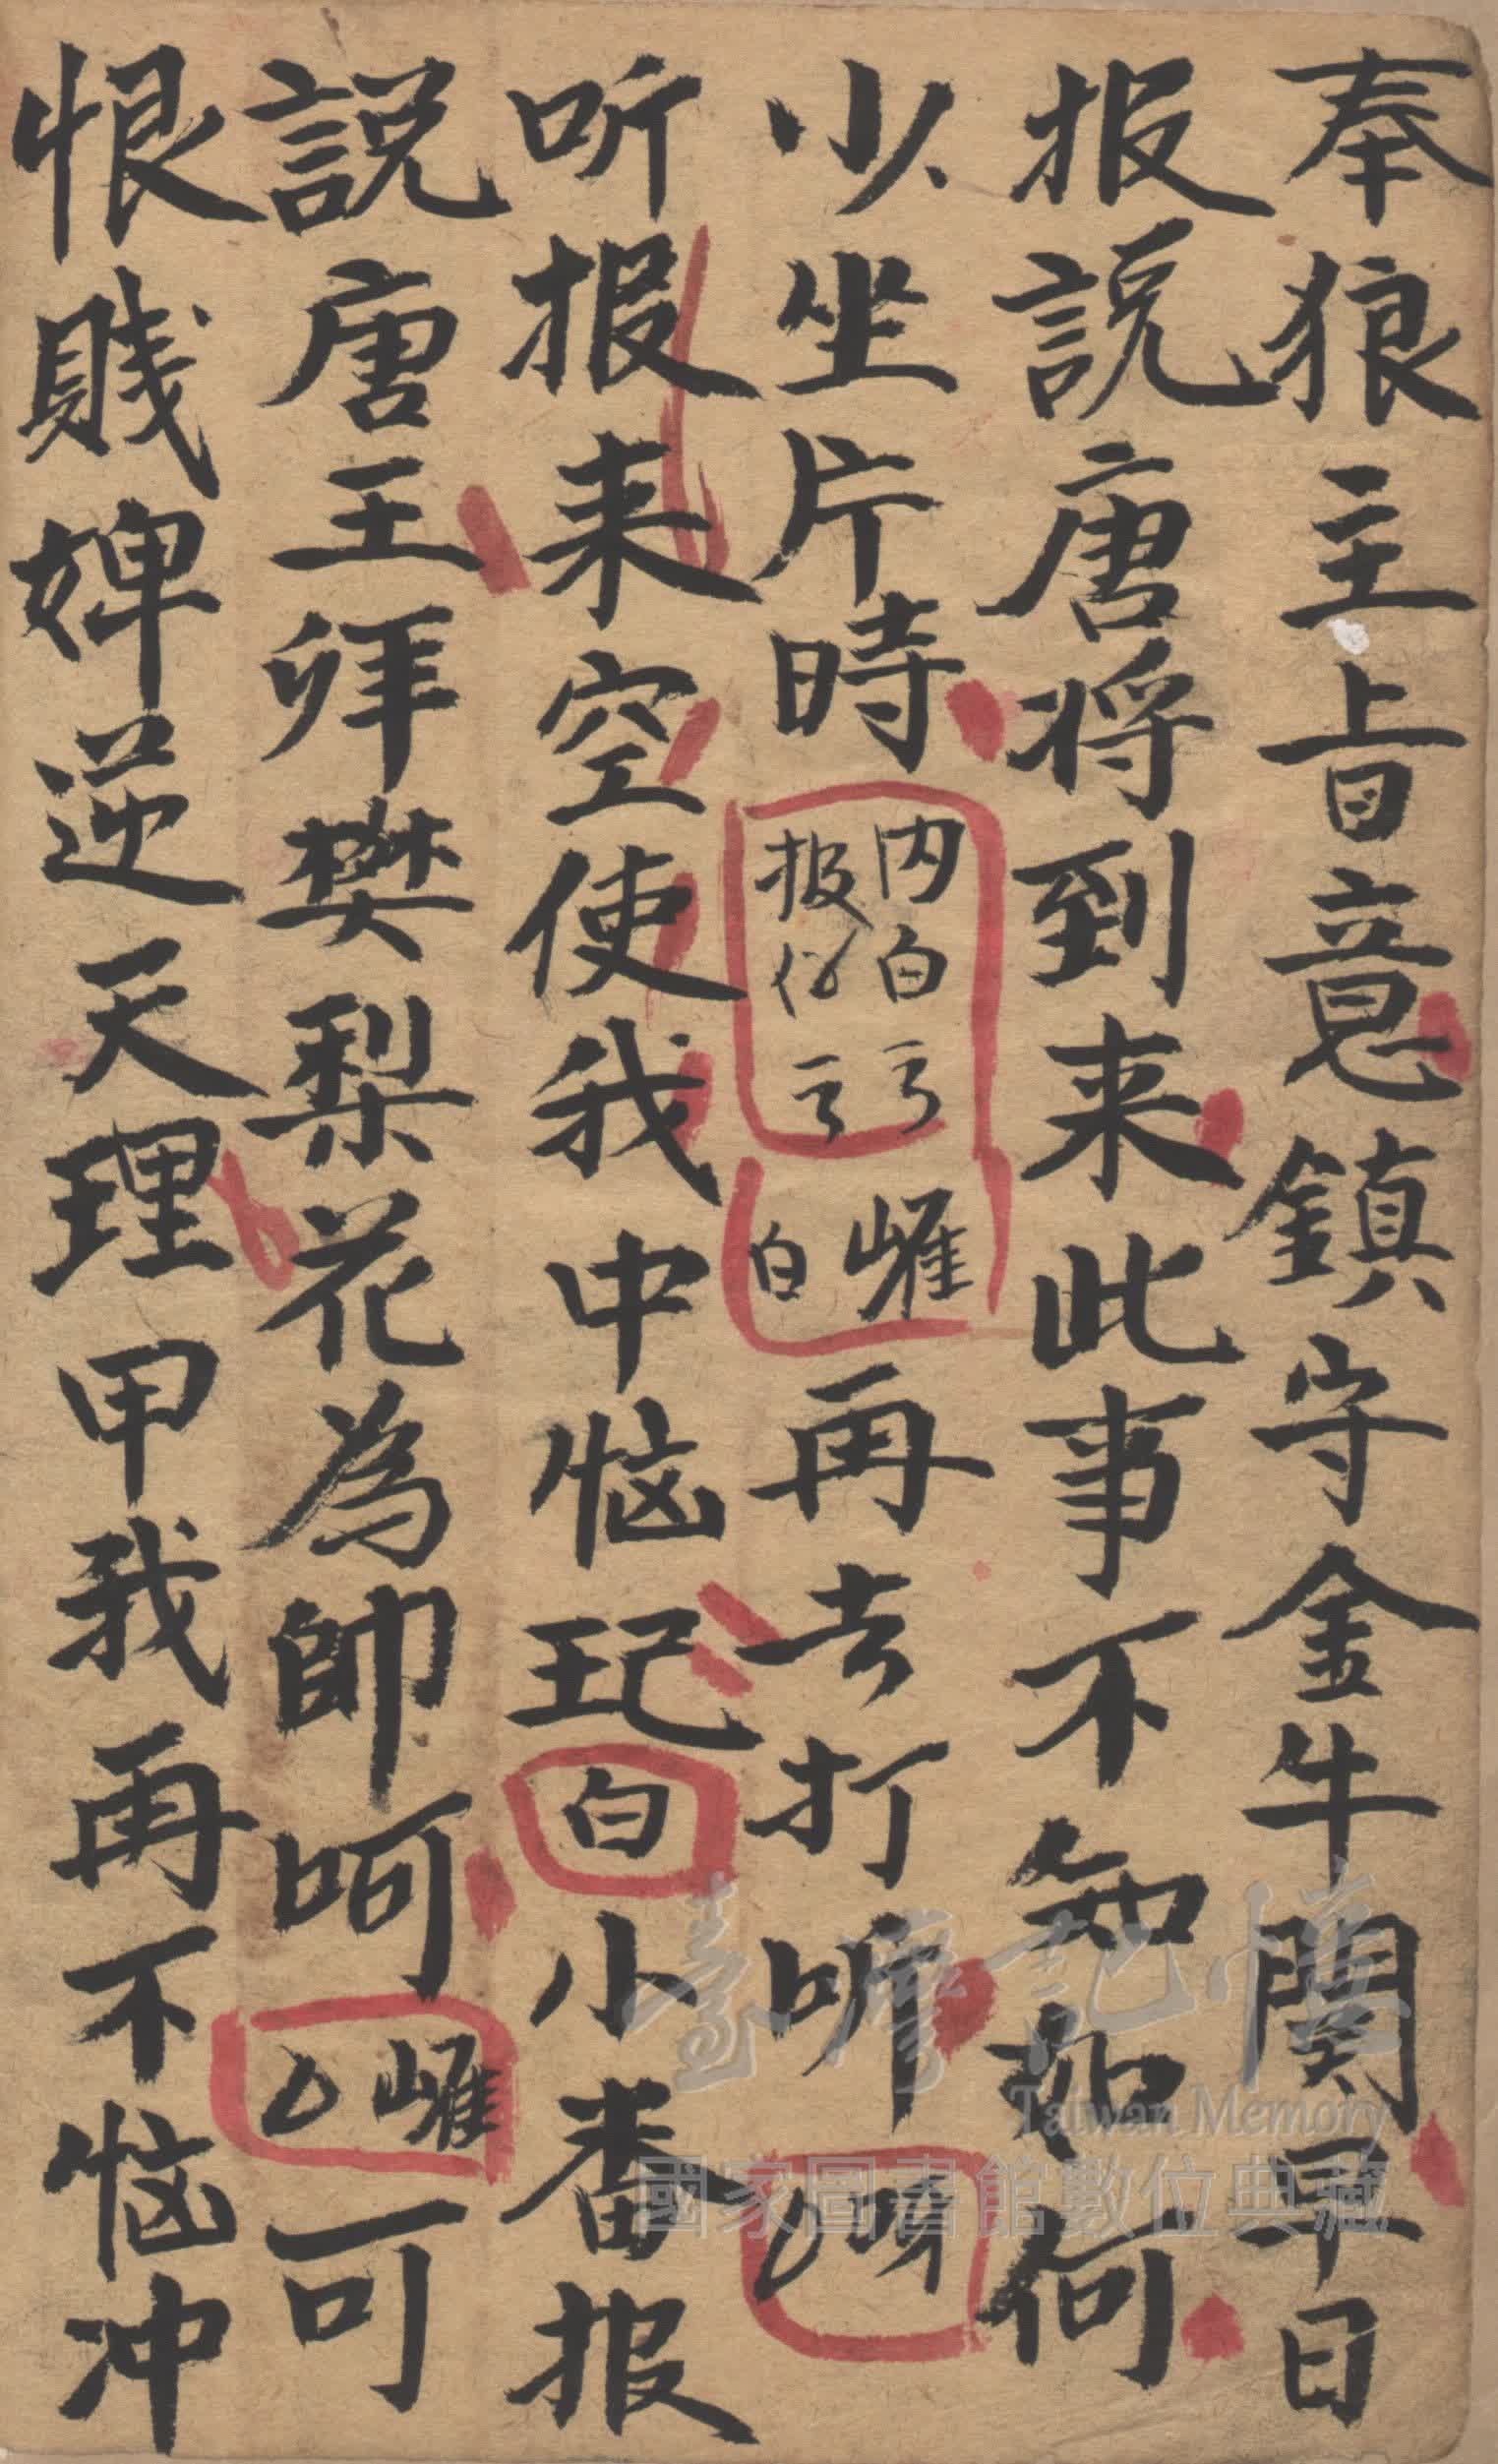 奉狼主上旨意鎮守金牛関早日
报説唐将到来此事不知如何
少坐片時内白亏报仪亏嶉白再去打听
听报来空使我中恼玘白小番报
説唐王拜樊梨花為帥呵嶉可
恨賤婢逆天理甲我再不恼冲
臺灣記憶
Taiwan Memory
國家圖書館數位典藏